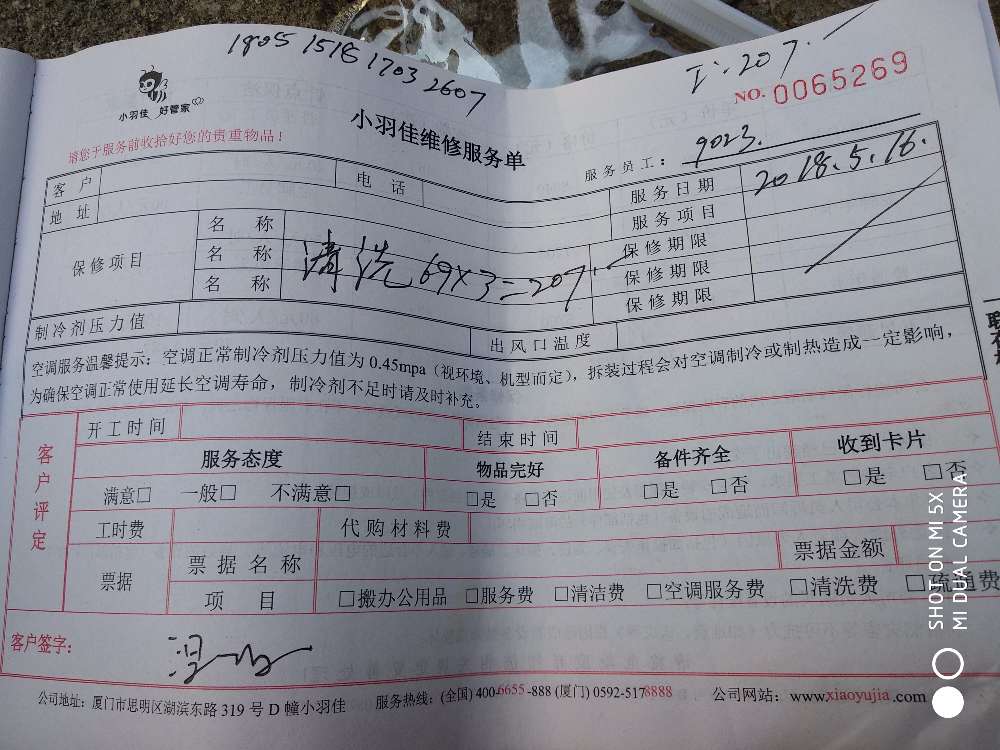 1805 1518 1703 2607
I: 207.
NO. 0065269
小羽佳 好管家
请您于服务前收拾好您的贵重物品！
小羽佳维修服务单
服务员工： 9023.
客户 电话 服务日期 2018.5.16.
地址 服务项目
保修项目 名称 保修期限
名称 清洗 69×3=207. 保修期限
名称 保修期限
制冷剂压力值 出风口温度
空调服务温馨提示：空调正常制冷剂压力值为 0.45mpa（视环境、机型而定），拆装过程会对空调制冷或制热造成一定影响，
为确保空调正常使用延长空调寿命，制冷剂不足时请及时补充。
客户评定
开工时间 结束时间
服务态度 物品完好 备件齐全 收到卡片
满意□ 一般□ 不满意□ □是 □否 □是 □否 □是 □否
工时费 代购材料费
票据 票据名称 票据金额
项目 □搬办公用品 □服务费 □清洁费 □空调服务费 □清洗费 □流通费
客户签字：
公司地址：厦门市思明区湖滨东路 319 号 D 幢小羽佳 服务热线：(全国) 400-6655-888 (厦门) 0592-5178888 公司网站：www.xiaoyujia.com
SHOT ON MI 5X
MI DUAL CAMERA